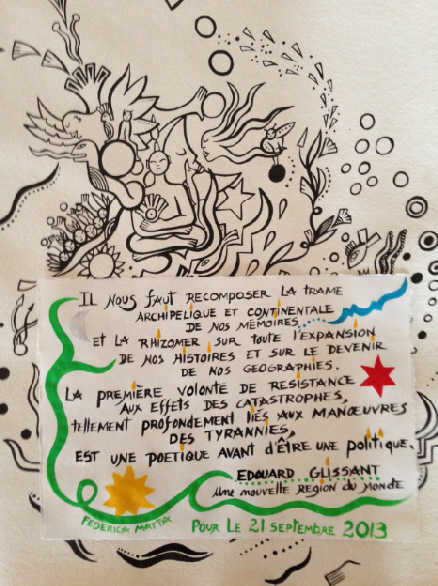 IL NOUS FAUT RECOMPOSER LA TRAME
ARCHIPELIQUE ET CONTINENTALE
DE NOS MÉMOIRES
ET LA RHIZOMER SUR TOUTE L'EXPANSION
DE NOS HISTOIRES ET SUR LE DEVENIR
DE NOS GEOGRAPHIES.
LA PREMIÈRE VOLONTÉ DE RESISTANCE
AUX EFFETS DES CATASTROPHES,
TELLEMENT PROFONDEMENT LIÉS AUX MANŒUVRES
DES TYRANNIES,
EST UNE POETIQUE AVANT D'ÊTRE UNE POLITIQUE.
EDOUARD GLISSANT
Une NOUVELLE REGION DU MONDE
FEDERICA MATTA
POUR LE 21 SEPTEMBRE 2013